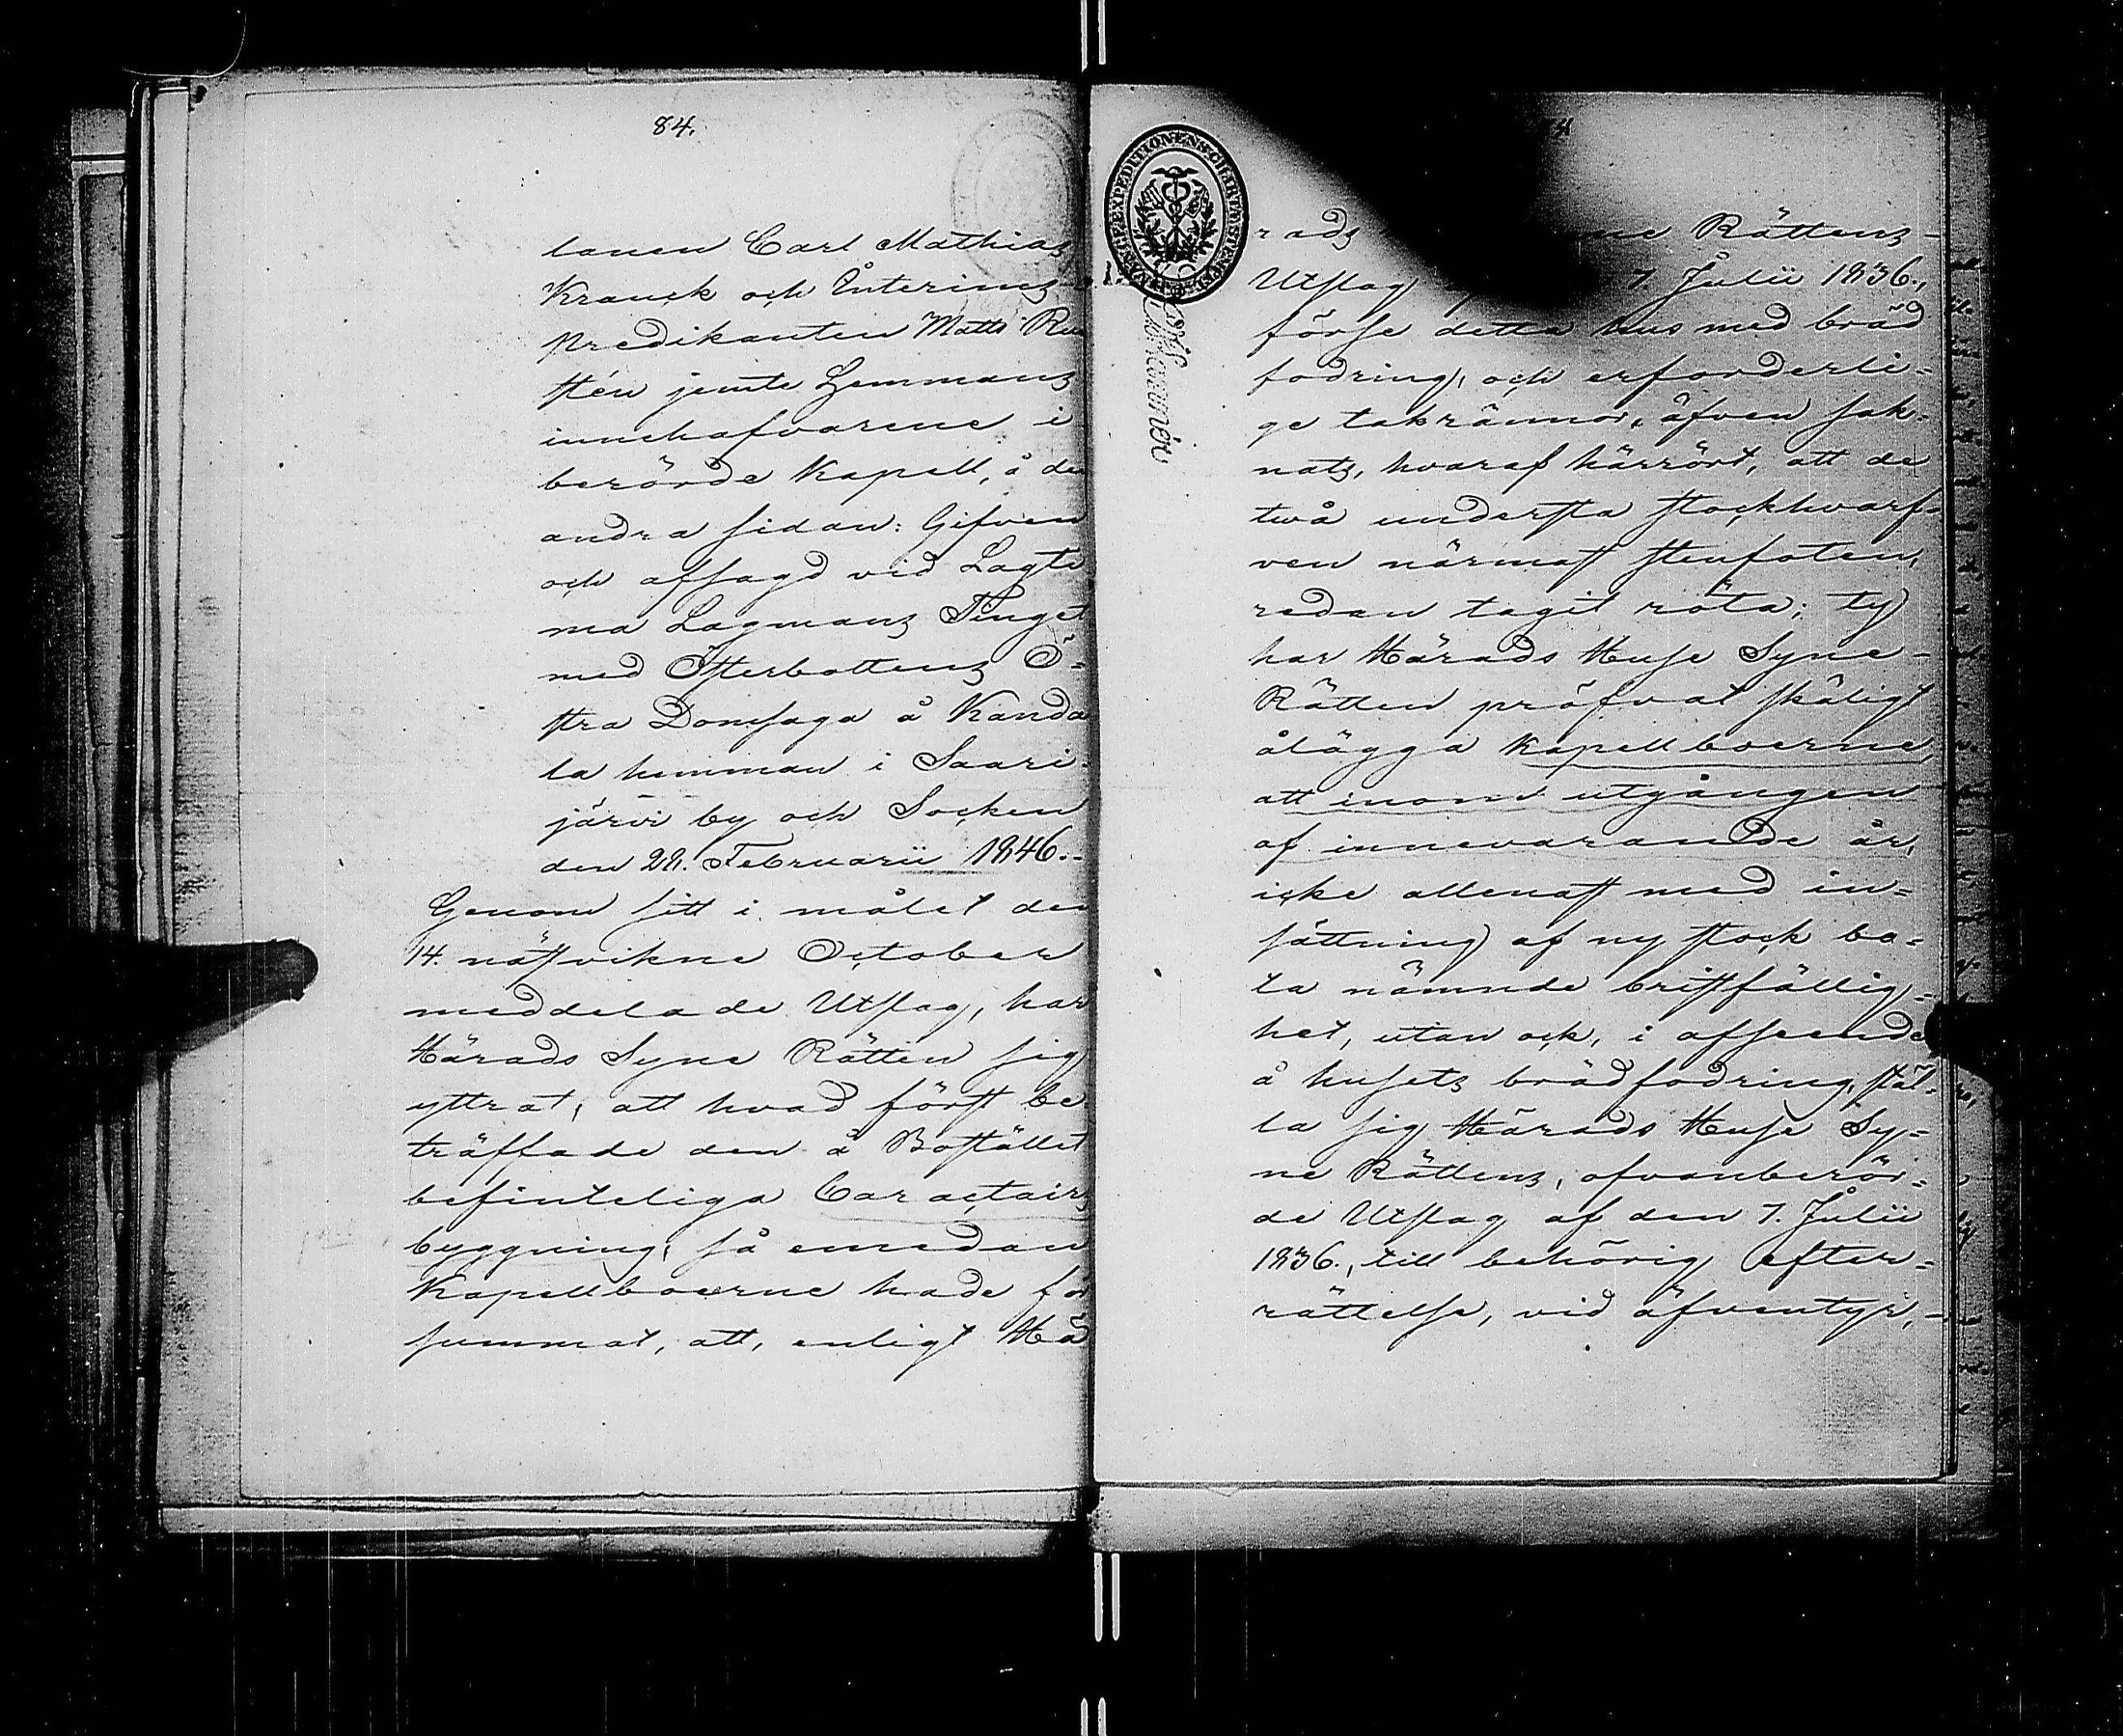 84.
lanen Carl Mathias
Kranck och Interims-
predikanten Matts
stén jemte Hemmans
innehafvarene i
berörde Kapell, å den
andra sidan: Gifven
och afsagd vid Lagti
ma Lagmans Tinget
med Österbottens Ö-
stra Domsaga å Kanda
la hemman i Saari-
järvi by och Socken
den 28. Februarii 1846.-
Genom sitt i målet den
14. nästvikne October
meddelade Utslag, har
Härads Syne Rätten sig
yttrat, att hvad först be
träffade den å Bostället
befinteliga Caractairs
byggning, så emedan
Kapellboerne hade för
summat, att, enligt Hä
rads ne Rättens-
Utslag 7. Julii 1836.,
förse detta hus med bräd
fodring, och erforderli-
ge takrännor, äfven sak-
nats, hvaraf härrört, att de
två understa stockhvarf-
ven närmast stenfoten,
redan tagit röta; ty
har Härads Huse Syne-
Rätten pröfvat skäligt
ålägga Kapellboerne,
att inom utgången
af innevarande år,
icke allenast med in-
sättning af ny stock bo-
ta nämnde bristfällig-
het, utan ock, i afseende
å husets brädfodring, stäl-
la sig Härads Huse Sy-
ne Rättens, ofvanberör-
de Utslag af den 7. Julii
1836., till behörig efter-
rättelse, vid äfventyr,-